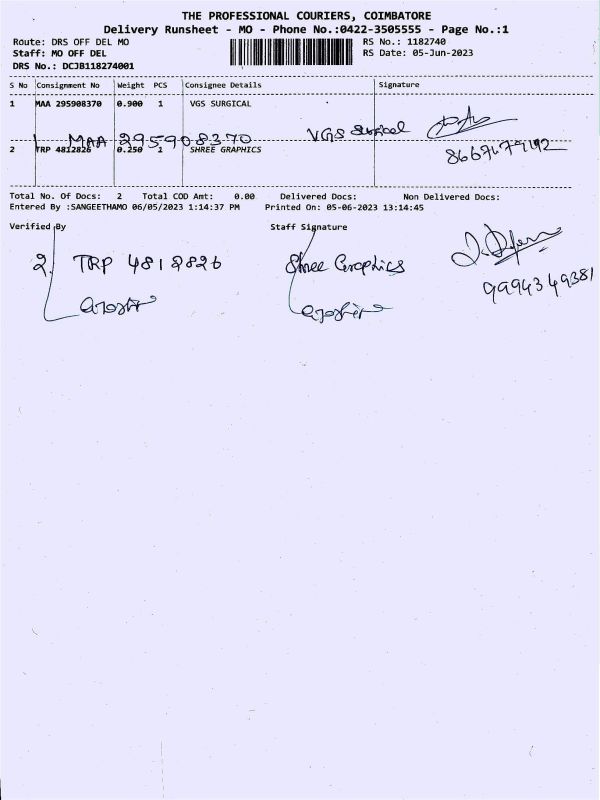 THE PROFESSIONAL COURIERS, COIMBATORE
Delivery Runsheet - MO - Phone No.:0422-3505555 - Page No.:1
Route: DRS OFF DEL MO RS No.: 1182740
Staff: MO OFF DEL RS Date: 05-Jun-2023
DRS No.: DCJB118274001
S No Consignment No Weight PCS Consignee Details Signature
1 MAA 295908370 0.900 1 VGS SURGICAL
MAA 295908370 VGS Surgical
2 TRP 4812826 0.250 1 SHREE GRAPHICS
Total No. Of Docs: 2 Total COD Amt: 0.00 Delivered Docs: Non Delivered Docs:
Entered By :SANGEETHAMO 06/05/2023 1:14:37 PM Printed On: 05-06-2023 13:14:45
Verified By Staff Signature
2. TRP 4812826 Shree Graphics
9994349381